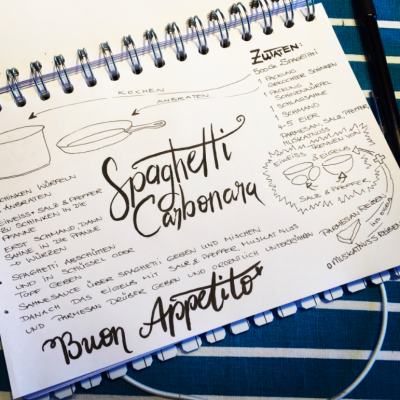 KOCHEN
ANBRATEN
ZUTATEN:
500G SPAGHETTI
1 PACKUNG
GEKOCHTER SCHINKEN
1 PACKUNG
SCHINKENWÜRFEL
1 SCHLAGSAHNE
1 SCHMAND
4-5 EIER
PARMESAN, SALZ, PFEFFER
MUSKATNUSS
TRENNEN VON
EIWEISS & EIGELB
SALZ & PFEFFER
Spaghetti
Carbonara
SCHINKEN WÜRFELN
& ANBRATEN
EIWEISS + SALZ & PFEFFER
ZU SCHINKEN IN DIE
PFANNE
ERST SCHMAND, DANN
SAHNE IN DIE PFANNE
& WÜRZEN
SPAGHETTI ABSCHÜTTEN
UND IN SCHÜSSEL ODER
TOPF GEBEN
SAHNESAUCE ÜBER SPAGHETTI GEBEN UND MISCHEN
DANACH DAS EIGELB MIT SALZ & PFEFFER, MUSKATNUSS
UND PARMESAN DRÜBER GEBEN UND ORDENTLICH UNTERRÜHREN
PARMESAN REIBEN
MUSKATNUSS REIBEN
Buon Appetito